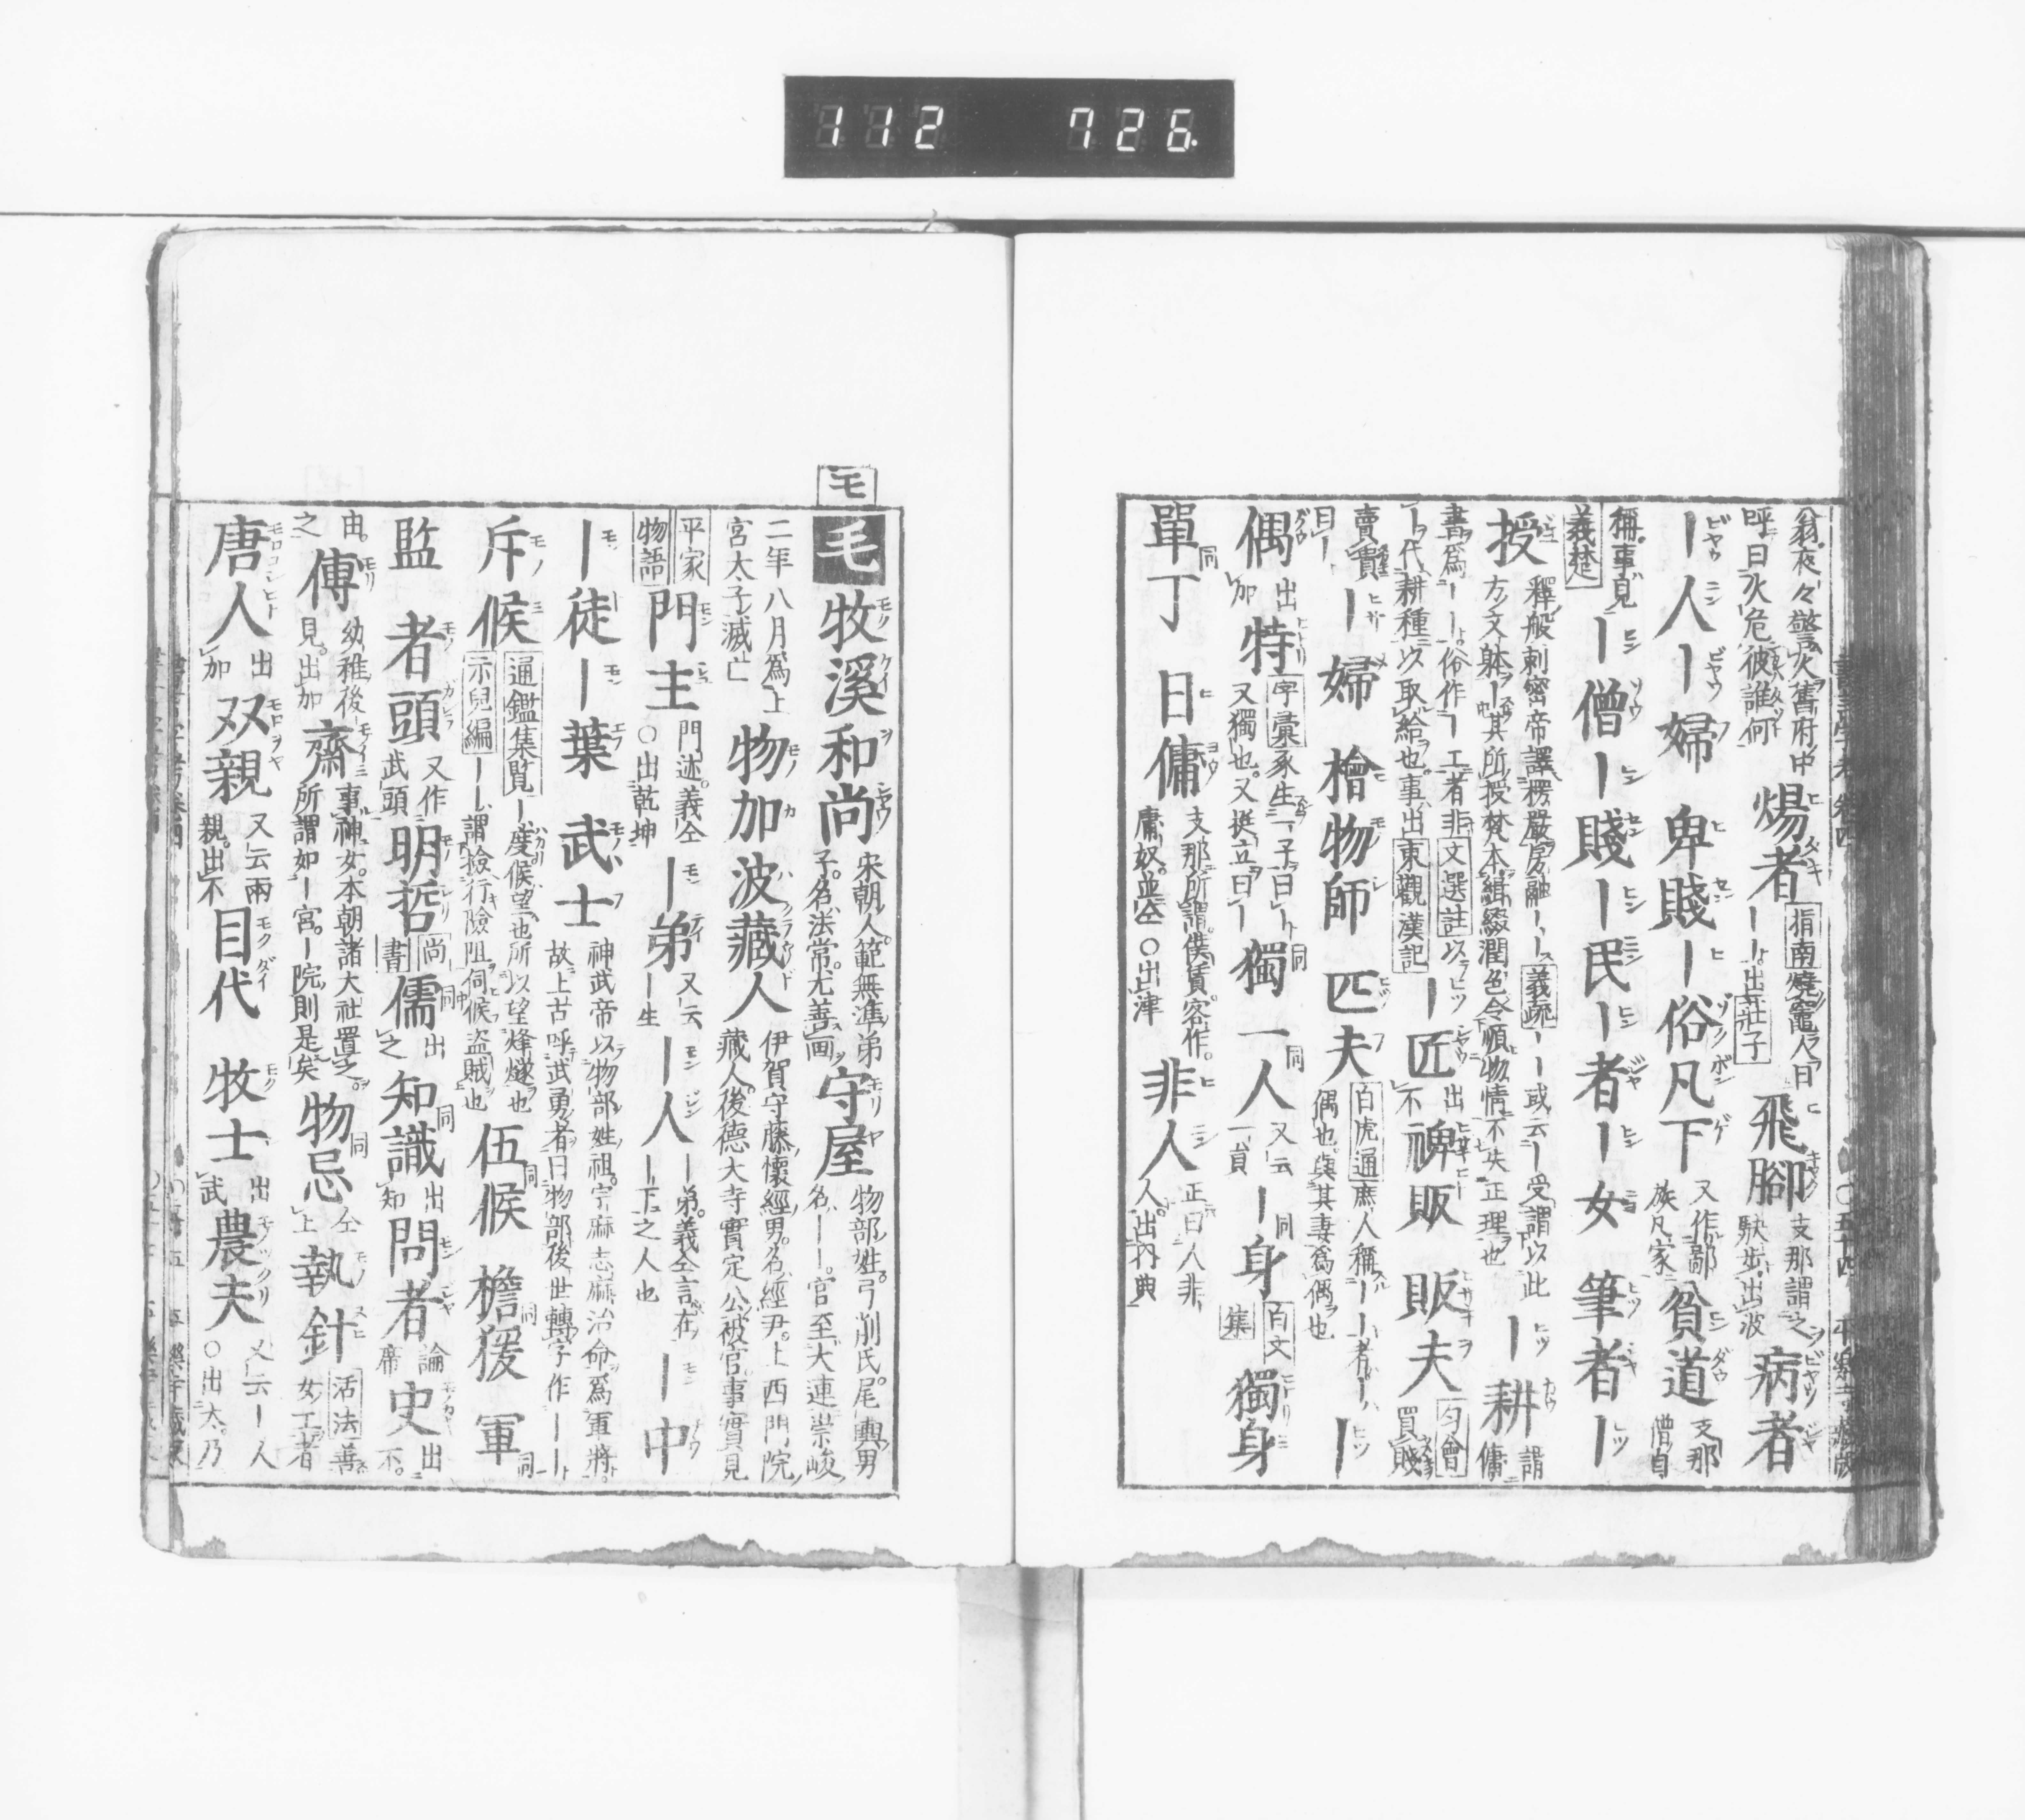 112 726
翁夜々警火舊府中
呼曰火危彼誰何
煬者 指南燒竈人曰
――出莊子
飛腳 支那謂之
駃步出波
病者
―人―婦 卑賤―俗凡下 又作鄙
族凡家
貧道 支那
僧自
稱事見
義楚
―僧―賤―民―者―女 筆者―
授 釋般剌密帝譯楞嚴房融――義疏――或云―受謂以此
方文躰―其所授梵本緝綴潤色令順物情不失正理也
―耕 謂
傭
書爲――俗作―工者非文選註以
―代耕種以取給也事出東觀漢記
―匠 出
不
裨販 販夫 勻會
買賤
賣貴
曰―
―婦 檜物師 匹夫 百虎通庶人稱――者―
偶也與其妻爲偶也
―
偶 出
加
特 字彙豕生一子曰―
又獨也又挺立曰―
獨 同
一人 同 又云
一員
―身 同 百文
集
獨身
單丁 同
日傭 支那所謂僕賃客作
庸奴並仝○出津
非人 正曰人非
人出內典
毛
毛 牧溪和尚 宋朝人範無準弟
子名法常尤善画
守屋 物部姓弓削氏尾輿男
名――官至大連崇峻
二年八月爲上
宮太子滅亡
物加波藏人 伊賀守藤懷經男名經尹上西門院
藏人後德大寺實定公被官事實見
平家
物語
門主 門迹義仝
○出乾坤
―弟 又云
―生
―人 ―弟義仝言在
―下之人也
―中
―徒―葉 武士 神武帝以物部姓祖宇麻志麻治命爲軍將
故上古呼武勇者曰物部後世轉字作――
斥候 通鑑集覧―度候望也所以望烽燧也
示兒編――謂撿行險阻伺候盗賊也
伍候 同
檐猨 同
軍 同
監 者頭 又作
武頭
明哲 尚
書
儒 同 出
之
知識 同 出
知
問者 論
席
史 出
不
由
之
傅 幼稚後
見出加
齋 事神女本朝諸大社置之
所謂如―宮―院則是矣
物忌 同 仝
上
執針 活法善
女工者
唐人 出
加
双親 又云兩
親出不
目代 牧士 出
武
農夫 又云―人
○出太乃